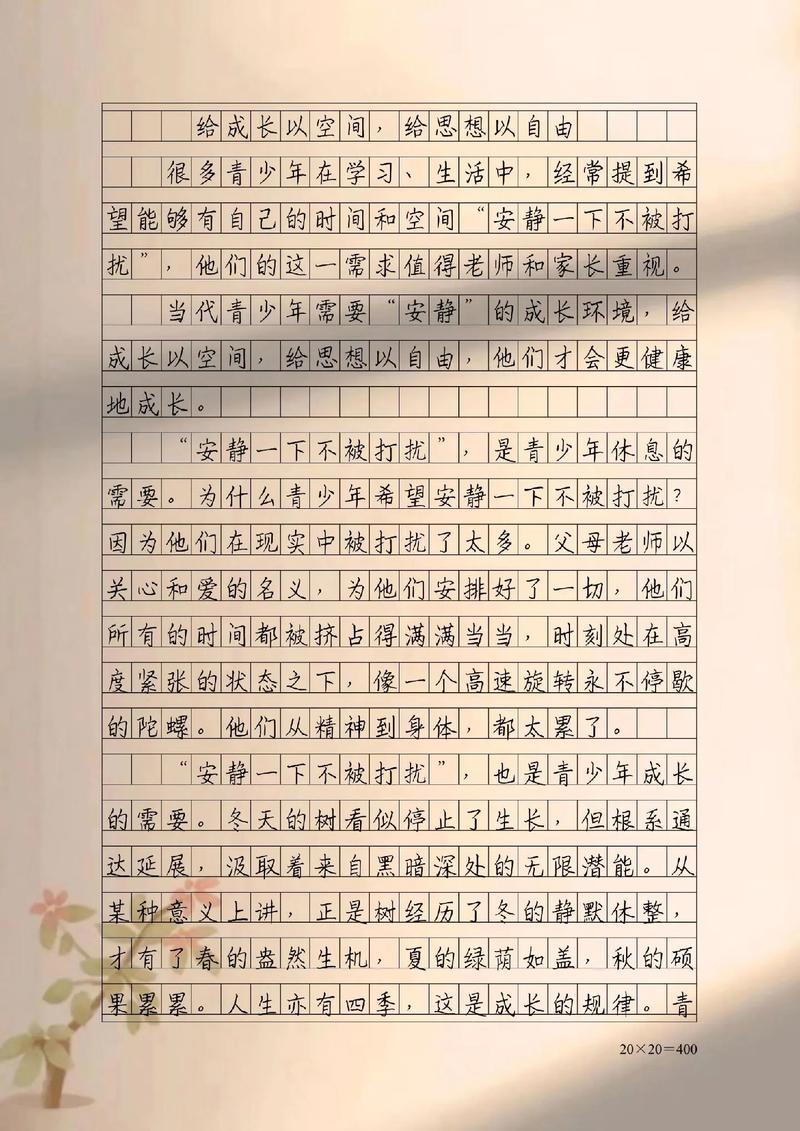 给成长以空间，给思想以自由
很多青少年在学习、生活中，经常提到希
望能够有自己的时间和空间“安静一下不被打
扰”，他们的这一需求值得老师和家长重视。
当代青少年需要“安静”的成长环境，给
成长以空间，给思想以自由，他们才会更健康
地成长。
“安静一下不被打扰”，是青少年休息的
需要。为什么青少年希望安静一下不被打扰？
因为他们在现实中被打扰了太多。父母老师以
关心和爱的名义，为他们安排好了一切，他们
所有的时间都被挤占得满满当当，时刻处在高
度紧张的状态之下，像一个高速旋转永不停歇
的陀螺。他们从精神到身体，都太累了。
“安静一下不被打扰”，也是青少年成长
的需要。冬天的树看似停止了生长，但根系通
达延展，汲取着来自黑暗深处的无限潜能。从
某种意义上讲，正是树经历了冬的静默休整，
才有了春的盎然生机，夏的绿荫如盖，秋的硕
果累累。人生亦有四季，这是成长的规律。青
20×20=400